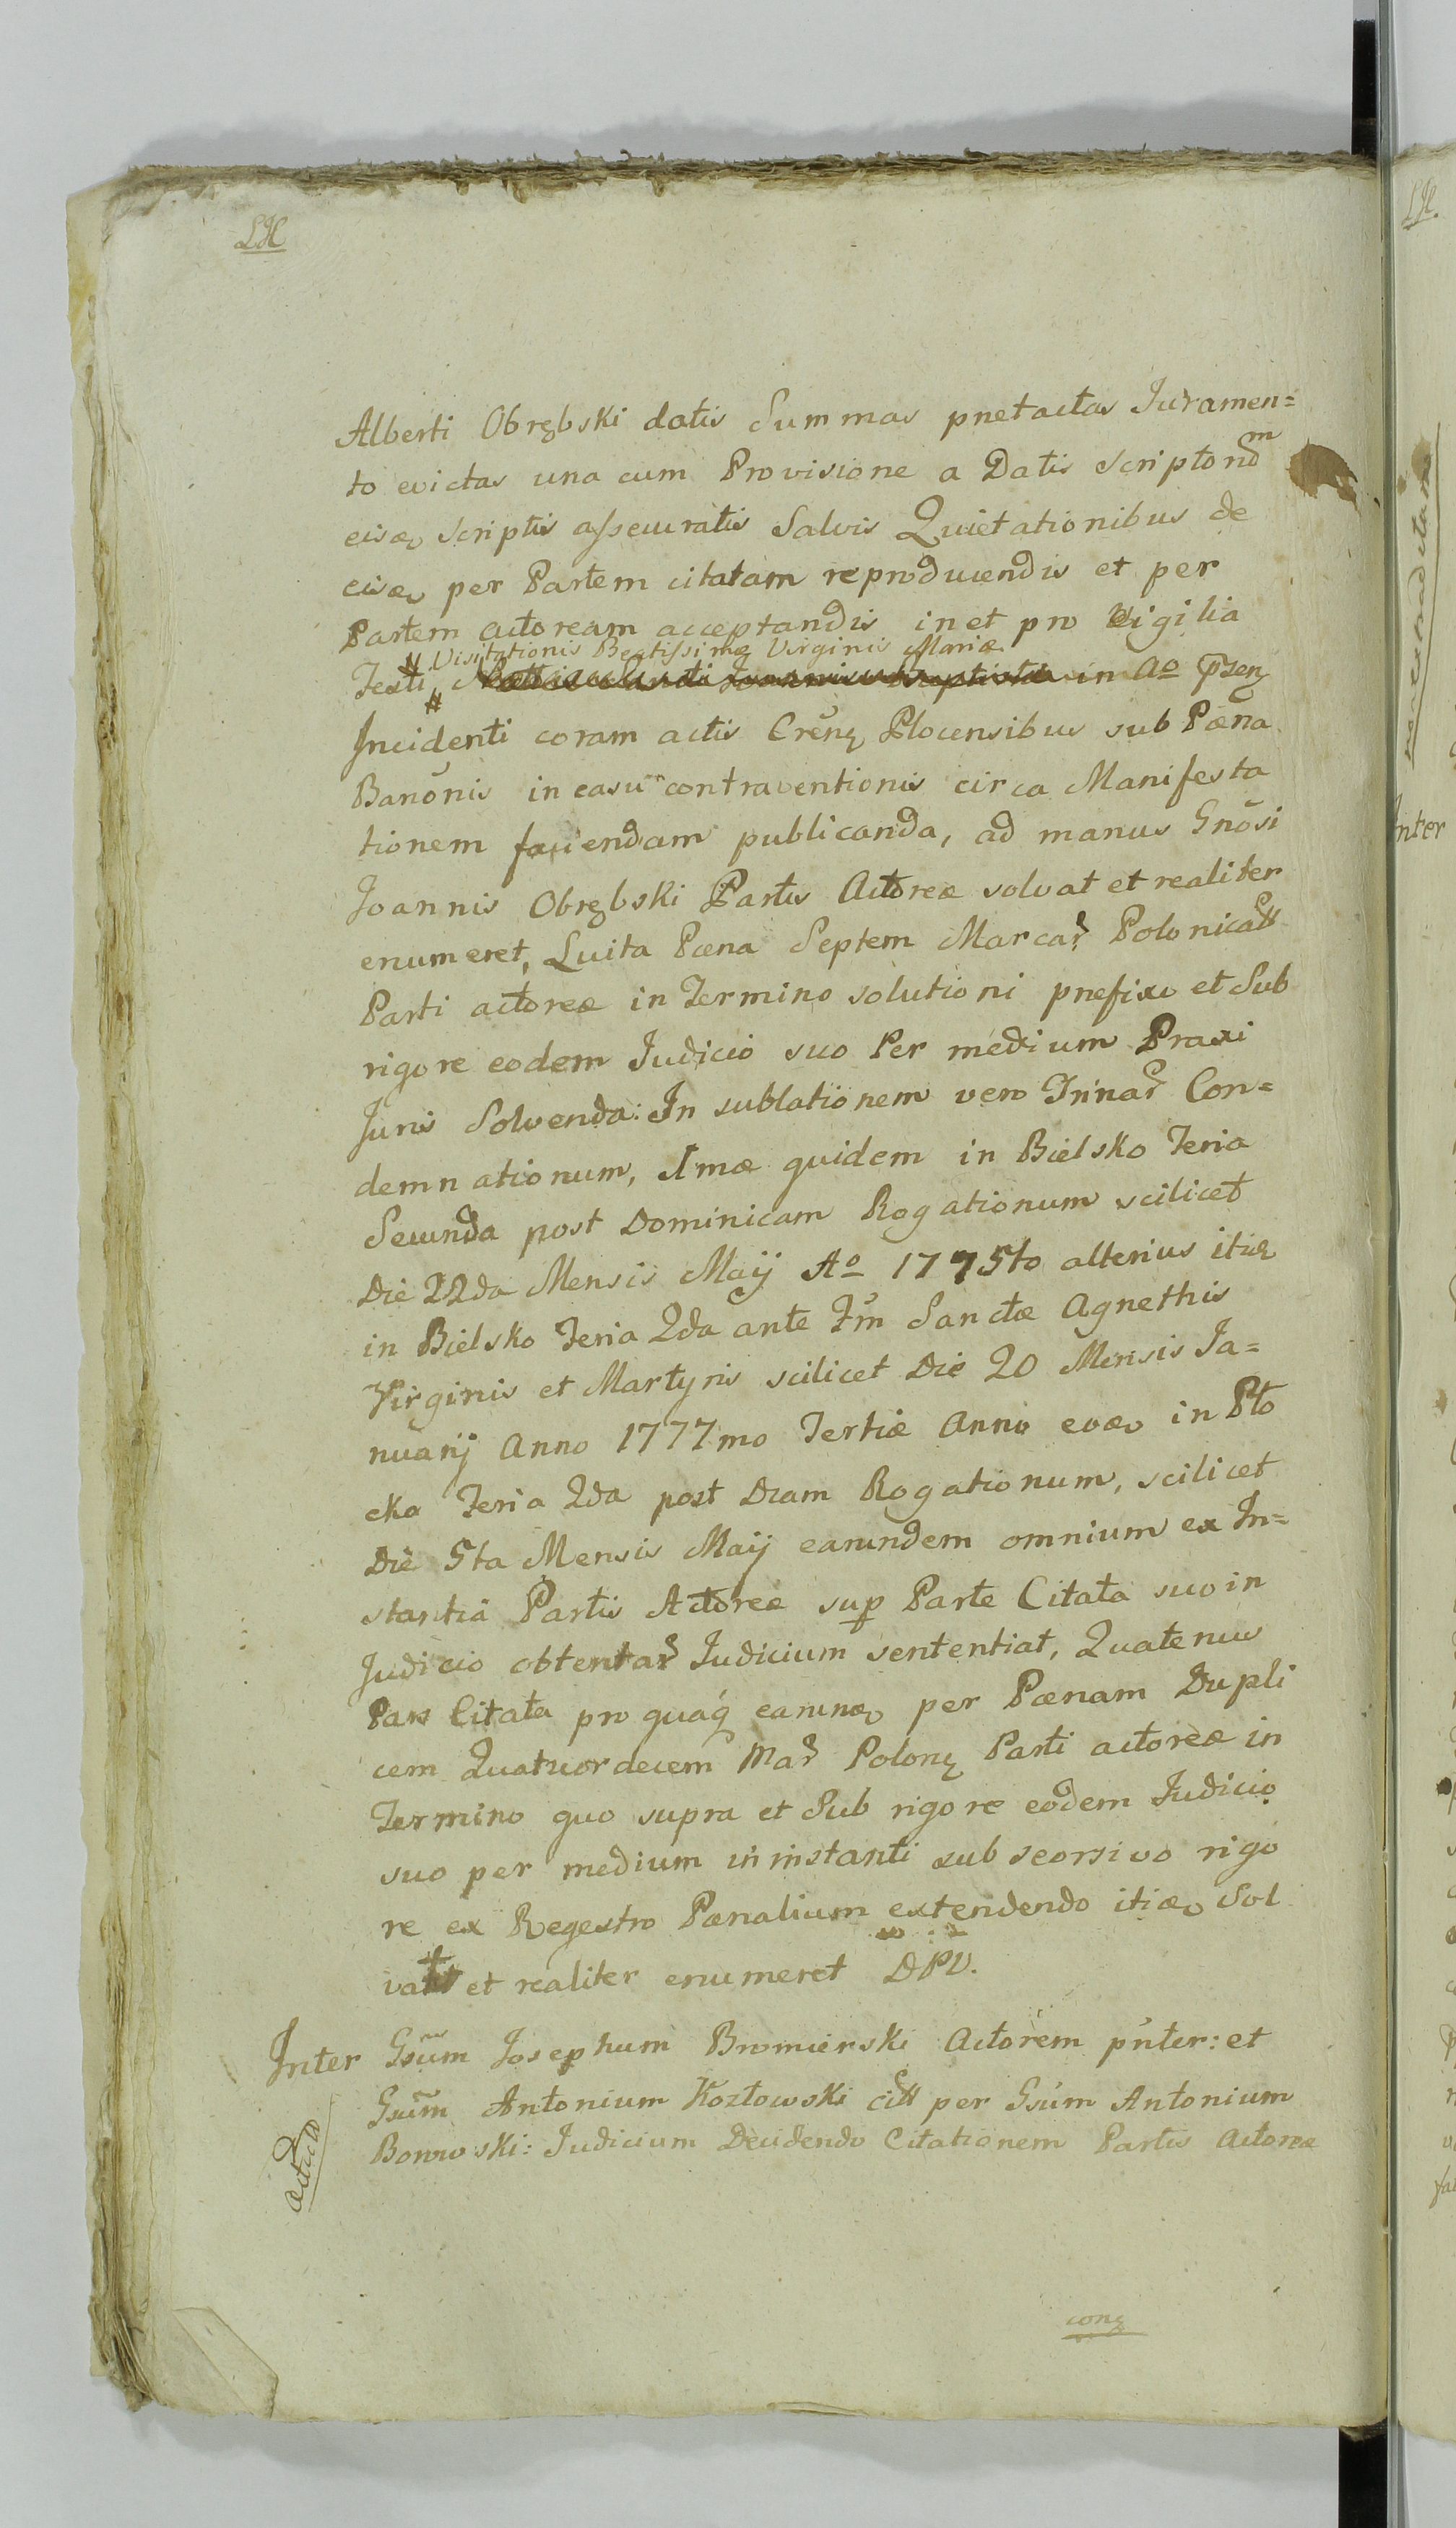 LH
Alberti Obrębski datis Summas pnetactas Iuramen=
to evictas una cum Provisione a Datis Scriptorum
eisdem Scriptis assecuratis Salvis Quietationibus de
eisdem per Partem citatam reproducendis et per
Partem actoream acceptandis in et pro Vigilia
# Visitationis Beatissimæ Virginis Mariæ
Festi # Nativitatis Sancti Joannis Baptistæ in Ao p̃senꝫ
Incidenti coram actis Crẽnꝫ Plocensibus sub Pœna
Banõnis in casu contraventionis circa Manifesta
tionem faciendam publicanda, ad manus Gnõsi
Joannis Obrębski Partis Actoreæ solvat et realiter
enumeret, Luita Pœna Septem Marcar Polonicall
Parti actoreæ in Termino solutioni prefixo et Sub
rigore eodem Judicio suo Per medium Praxi
Juris Solvenda: In sublationem vero Trinar Con=
demnationum, 1mæ quidem in Bielsko Feria
Secunda post Dominicam Rogationum scilicet
Die 22da Mensis Maij Ao 1775to alterius itidem
in Bielsko Feria 2da ante Fm̃ Sanctæ Agnethis
Virginis et Martyris scilicet Die 20 Mensis Ja=
nuarij Anno 1777mo Tertiæ Anno eodem in Pło
cko Feria 2da post Dcam Rogationum, scilicet
Die 5ta Mensis Maij earundem omnium ex In=
stantia Partis Actoreæ sup Parte Citata suo in
Judicio obtentar Judicium sententiat, Quatenus
Pars Citata pro quaq̃ earundem per Pœnam Dupli
cem Quatuordecem Mar Polonꝫ Parti actoreæ in
Termino quo supra et Sub rigore eodem Judicio
suo per medium in instanti sub seorsivo rigo
re ex Regestro Pœnalium extendendo itidem Sol
vat et realiter enumeret DPV.
Inter Gsũm Josephum Bromierski Actorem p̃nter: et
Gsũm Antonium Kozłowski citt per Gsũm Antonium
Borowski: Judicium Decidendo Citationem Partis Actoreæ
conꝫ
LH.
Inter